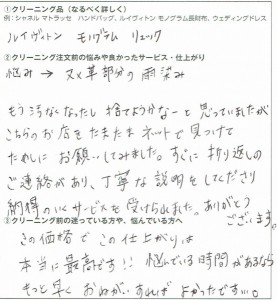 ①クリーニング品（なるべく詳しく）
例：シャネル マトラッセ ハンドバッグ、ルイヴィトン モノグラム長財布、ウェディングドレス
ルイヴィトン モノグラム リュック
②クリーニング注文前の悩みや良かったサービス・仕上がり
悩み → ヌメ革部分の雨染み
もう汚なくなったし捨てようかなーと思っていましたが
こちらのお店をたまたまネートで見つけて
ためしにお願いしてみました。すぐに折り返しの
ご連絡があり、丁寧な説明をしてくださり
納得のいくサービスを受けられました。ありがとう
ございます。
③クリーニング前の迷っている方や、悩んでいる方へ
この価格でこの仕上がりは
本当に最高です!! 悩んでいる時間があるなら
もっと早くおねがいすればよかったです…。